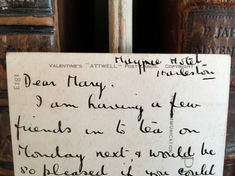 VALENTINE'S "ATTWELL" POST CARDS. COPYRIGHT
Magpie Hotel
Harleston
1813
Dear Mary.
I am having a few
friends in to tea on
Monday next, & would be
so pleased if you could